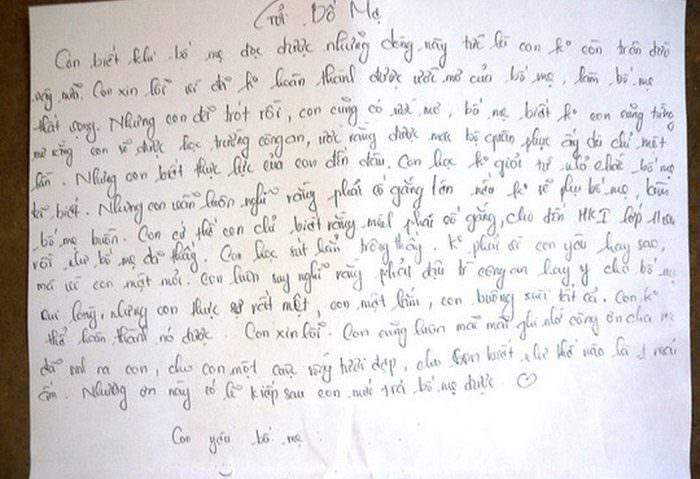 Gửi Bố Mẹ
Con biết khi bố mẹ đọc được những dòng này tức là con ko còn trên đời
này nữa. Con xin lỗi vì đã ko hoàn thành được ước mơ của bố mẹ, làm bố mẹ
thất vọng. Nhưng con đã trót rồi, con cũng có ước mơ, bố mẹ biết ko con cũng từng
mơ rằng con sẽ được học trường công an, ước rằng được mặc bộ quân phục ấy dù chỉ một
lần. Nhưng con biết thực lực của con đến đâu. Con học ko giỏi từ nhỏ chắc bố mẹ
đã biết. Nhưng con luôn nghĩ rằng phải cố gắng lên nếu ko sẽ phụ bố mẹ, làm
bố mẹ buồn. Con cứ thế con chỉ biết rằng mình phải cố gắng, cho đến HKI lớp 11
rồi như bố mẹ đã thấy. Con học sút hẳn trông thấy. Ko phải vì con yêu hay sao,
mà vì con mệt mỏi. Con luôn suy nghĩ rằng phải đậu trg công an hay y cho bố mẹ
vui lòng, nhưng con thực sự rất mệt, con mệt lắm, con buông xuôi tất cả. Con ko
thể hoàn thành nó được. Con xin lỗi. Con cũng luôn mãi mãi ghi nhớ công ơn cha mẹ
đã sinh ra con, cho con một cuộc sống tươi đẹp, cho con biết như thế nào là 1 mái
ấm. Nhưng ơn này có lẽ kiếp sau con mới trả bố mẹ được. ♡
Con yêu bố mẹ